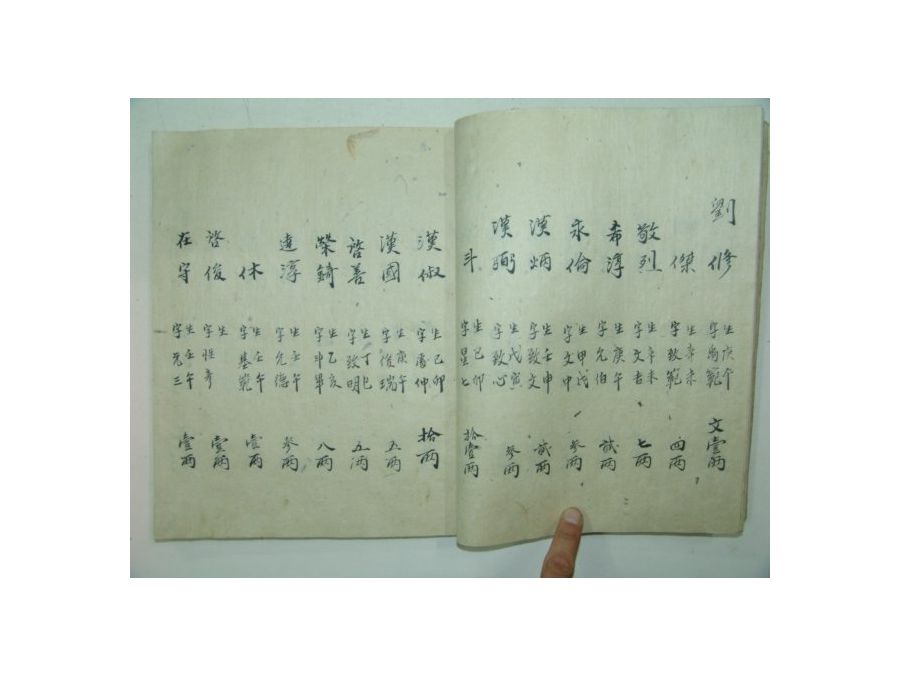 劉修 字禹範 生庚午 文壹兩
傑 字致範 生辛未 四兩
敬烈 字文若 生辛未 七兩
希淳 字允伯 生庚午 貳兩
永倫 字文中 生甲戌 參兩
漢炳 字致文 生壬申 貳兩
漢弼 字致心 生戊寅 參兩
斗 字星七 生己卯 拾壹兩
漢俶 字禹仲 生己卯 拾兩
漢國 字俊瑞 生庚午 五兩
啓善 字致明 生丁巳 五兩
榮錡 字斗畢 生乙亥 八兩
達淳 字允德 生壬午 參兩
休 字基範 生壬午 壹兩
啓俊 字性 生 壹兩
在守 字允三 生壬午 壹兩